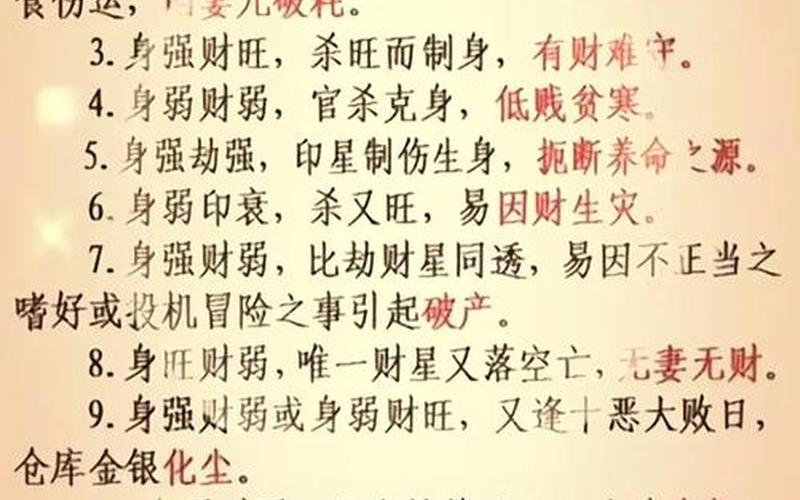 破耗。
3.身强财旺，杀旺而制身，有财难守。
4.身弱财弱，官杀克身，低贱贫寒。
5.身强劫强，印星制伤生身，扼断养命之源。
6.身弱印衰，杀又旺，易因财生灾。
7.身强财弱，比劫财星同透，易因不正当之
嗜好或投机冒险之事引起破产。
8.身旺财弱，唯一财星又落空亡，无妻无财。
9.身强财弱或身弱财旺，又逢十恶大败日，
仓库金银化尘。